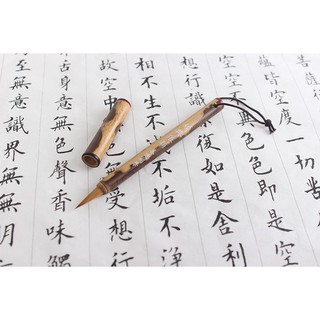 蘊皆空度一切苦
空空不異色色即是空
想行識復如是舍利
相不生不不垢不淨
故空中無受想行
舌身意無色聲香味觸
至無意識界無無明